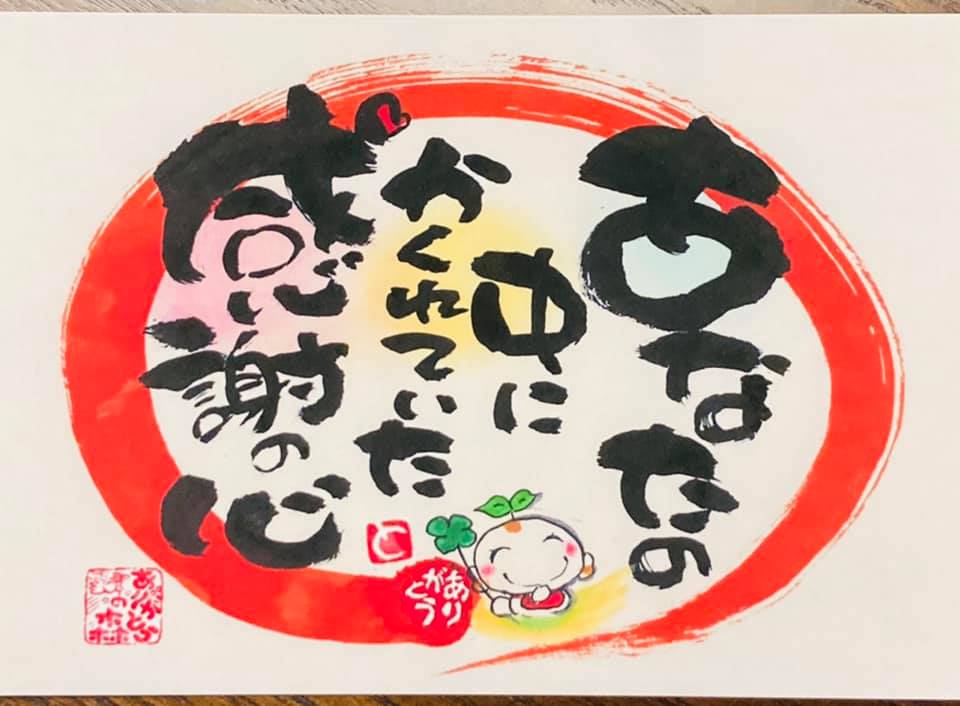 あなたの
中に
かくれていた
感謝の心
あり
がとう